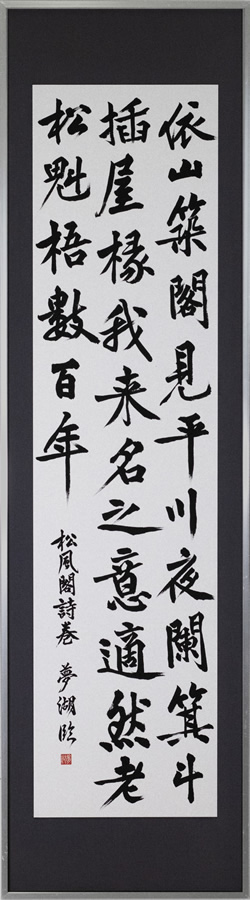 依山築閣見平川夜闌箕斗
插屋椽我来名之意適然老
松魁梧數百年
松風閣詩巻 夢湖臨